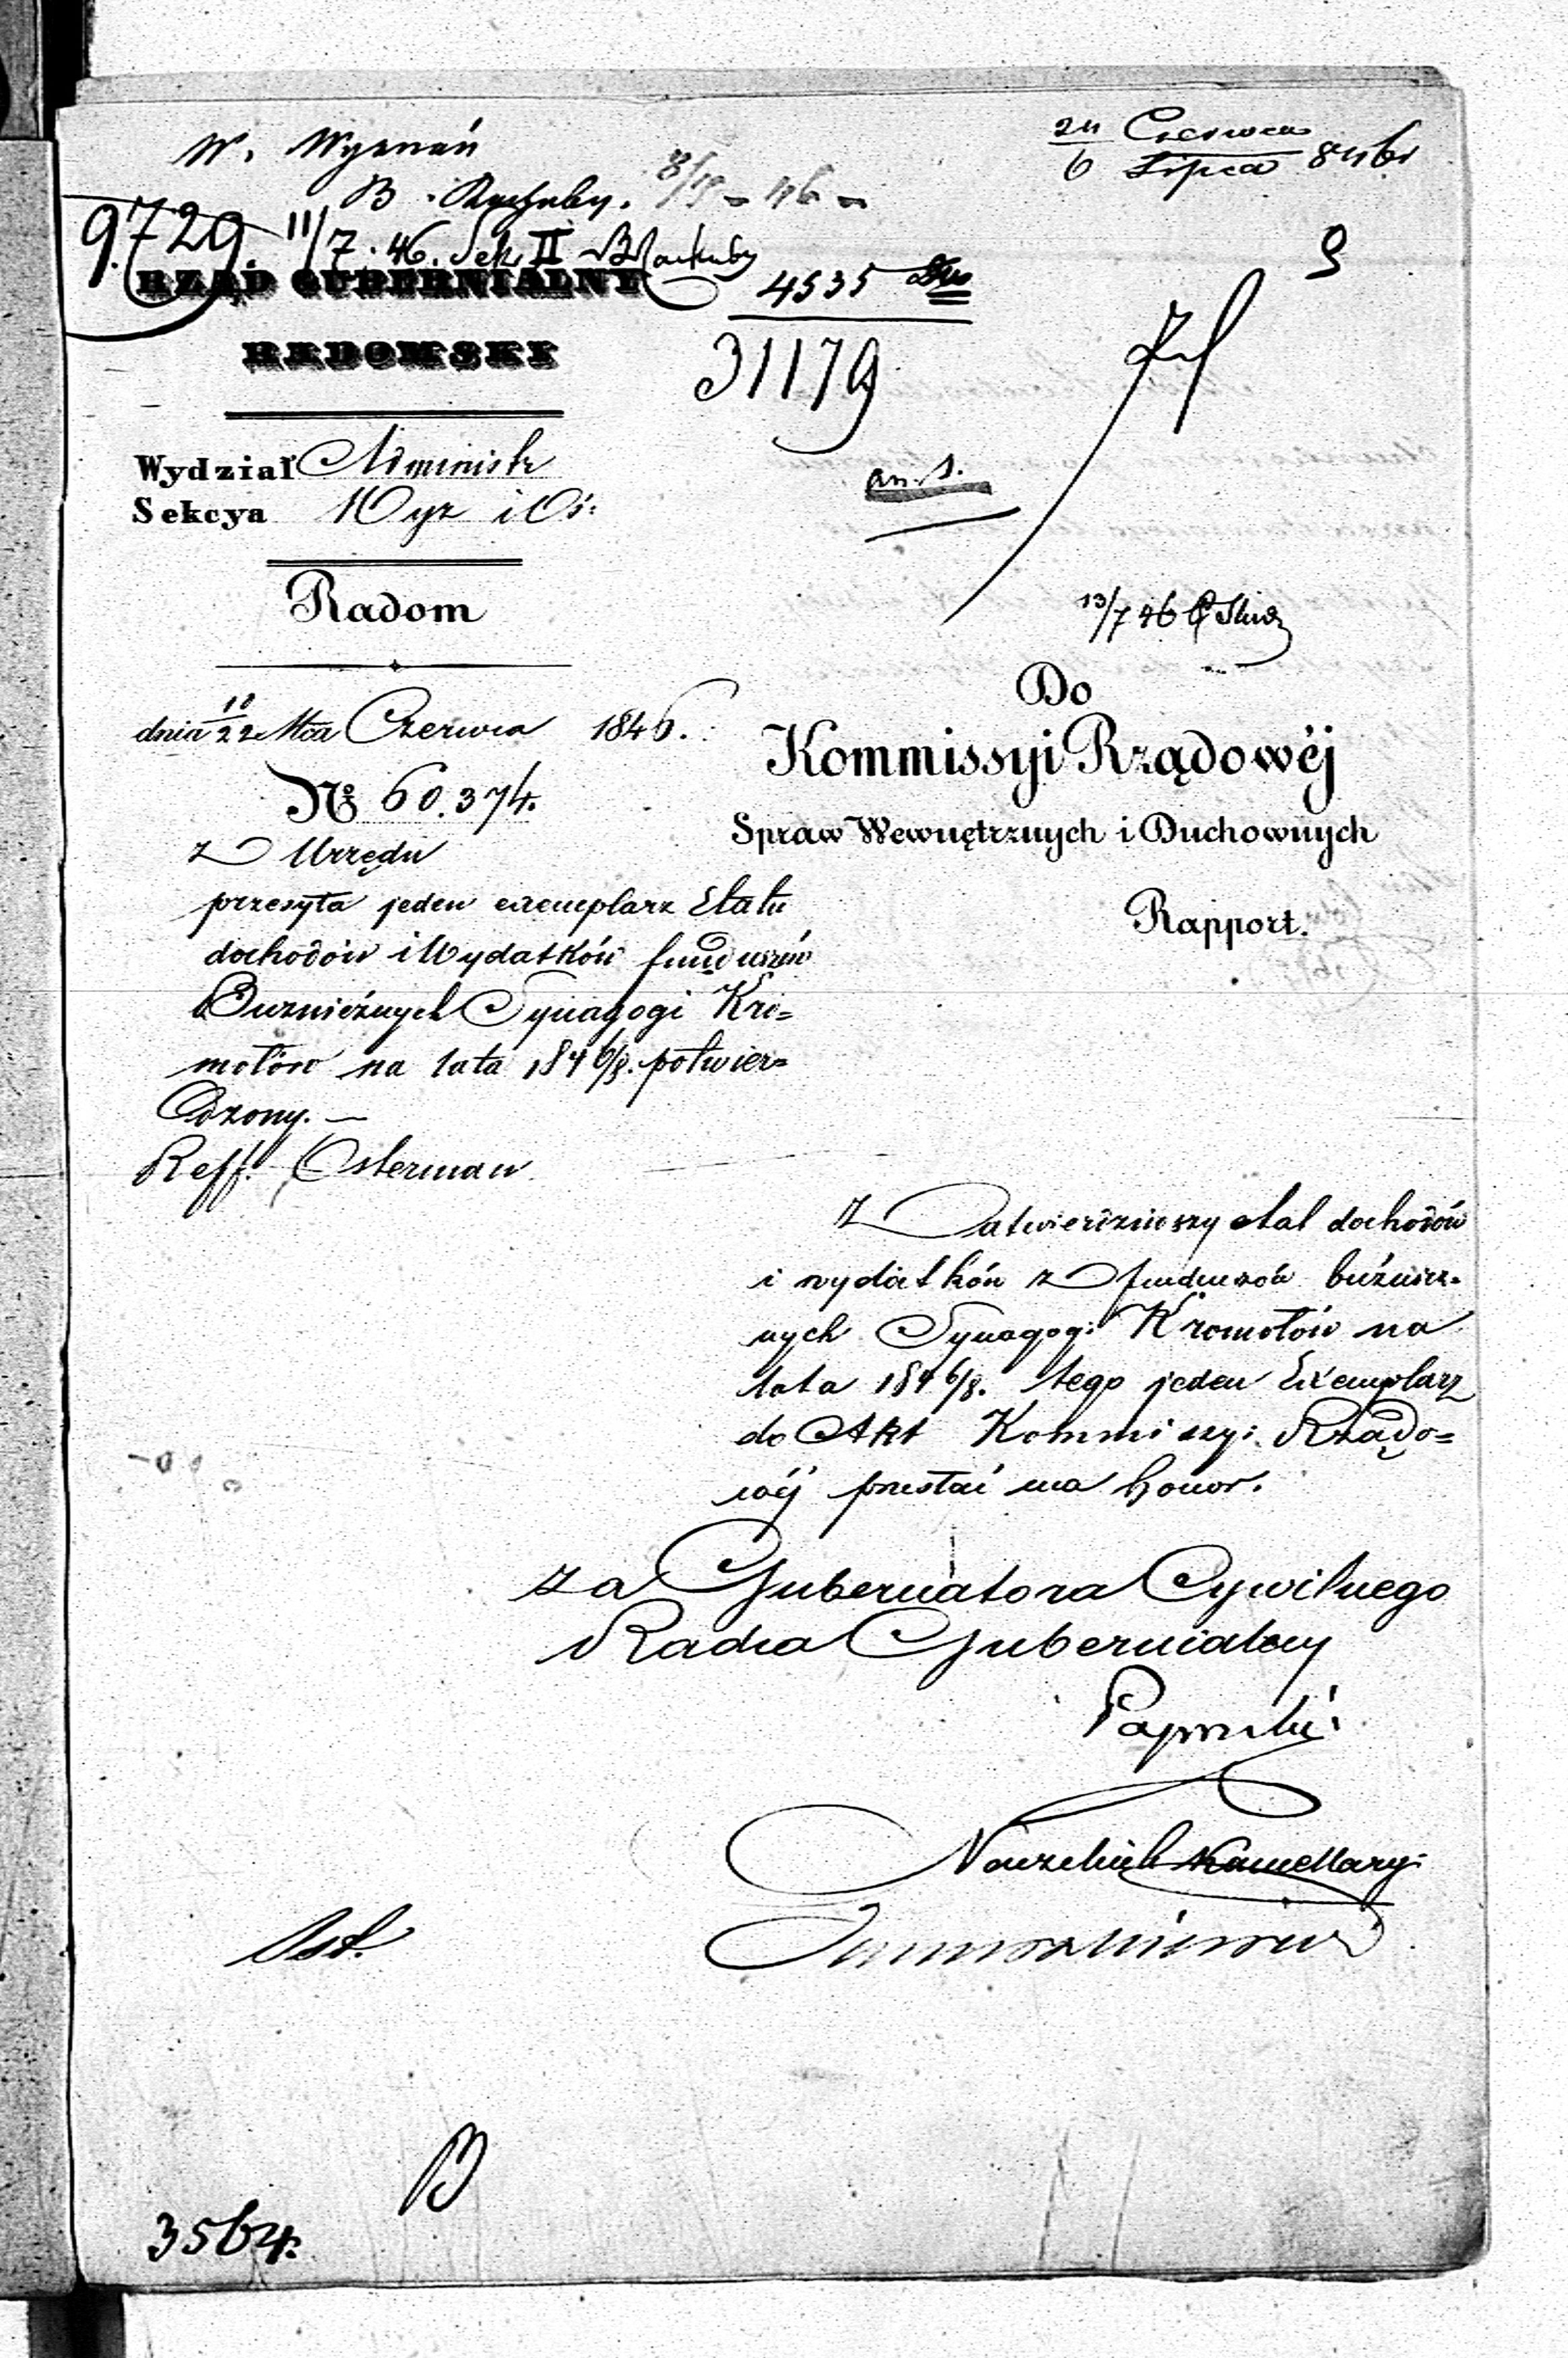 W. Wyznań
24 Czerwca
6 Lipca 846r
9729 11/7. 46. Sek II
9
RZĄD GUBERNIALNY
RADOMSKI
4535
31179
an. 1.
Wydział Administr
Sekcya Wyz i Oś:
Radom
13/7 46
dnia 10/22 Mca Czerwca 1846.
No 60.374.
Z Urzędu
przesyła jeden exemplarz Etatu
dochodów i Wydatków funduszów
Bużnicznych Synagogi Kro=
mołów na lata 184 6/8. potwier=
dzony. —
Reff. Osterman
Do
Kommissyi Rządowéj
Spraw Wewnętrznych i Duchownych
Rapport.
Zatwierdziwszy etat dochodów
i wydatków z funduszów bużnicz=
nych Synagogi Kromołów na
lata 184 6/8. tego jeden Exemplarz
do Akt Kommissyi Rządo=
wéj przesłać ma honor.
za Gubernatora Cywilnego
Radca Gubernialny
Naczelnik Kancellaryi
Ost.
B
3564.